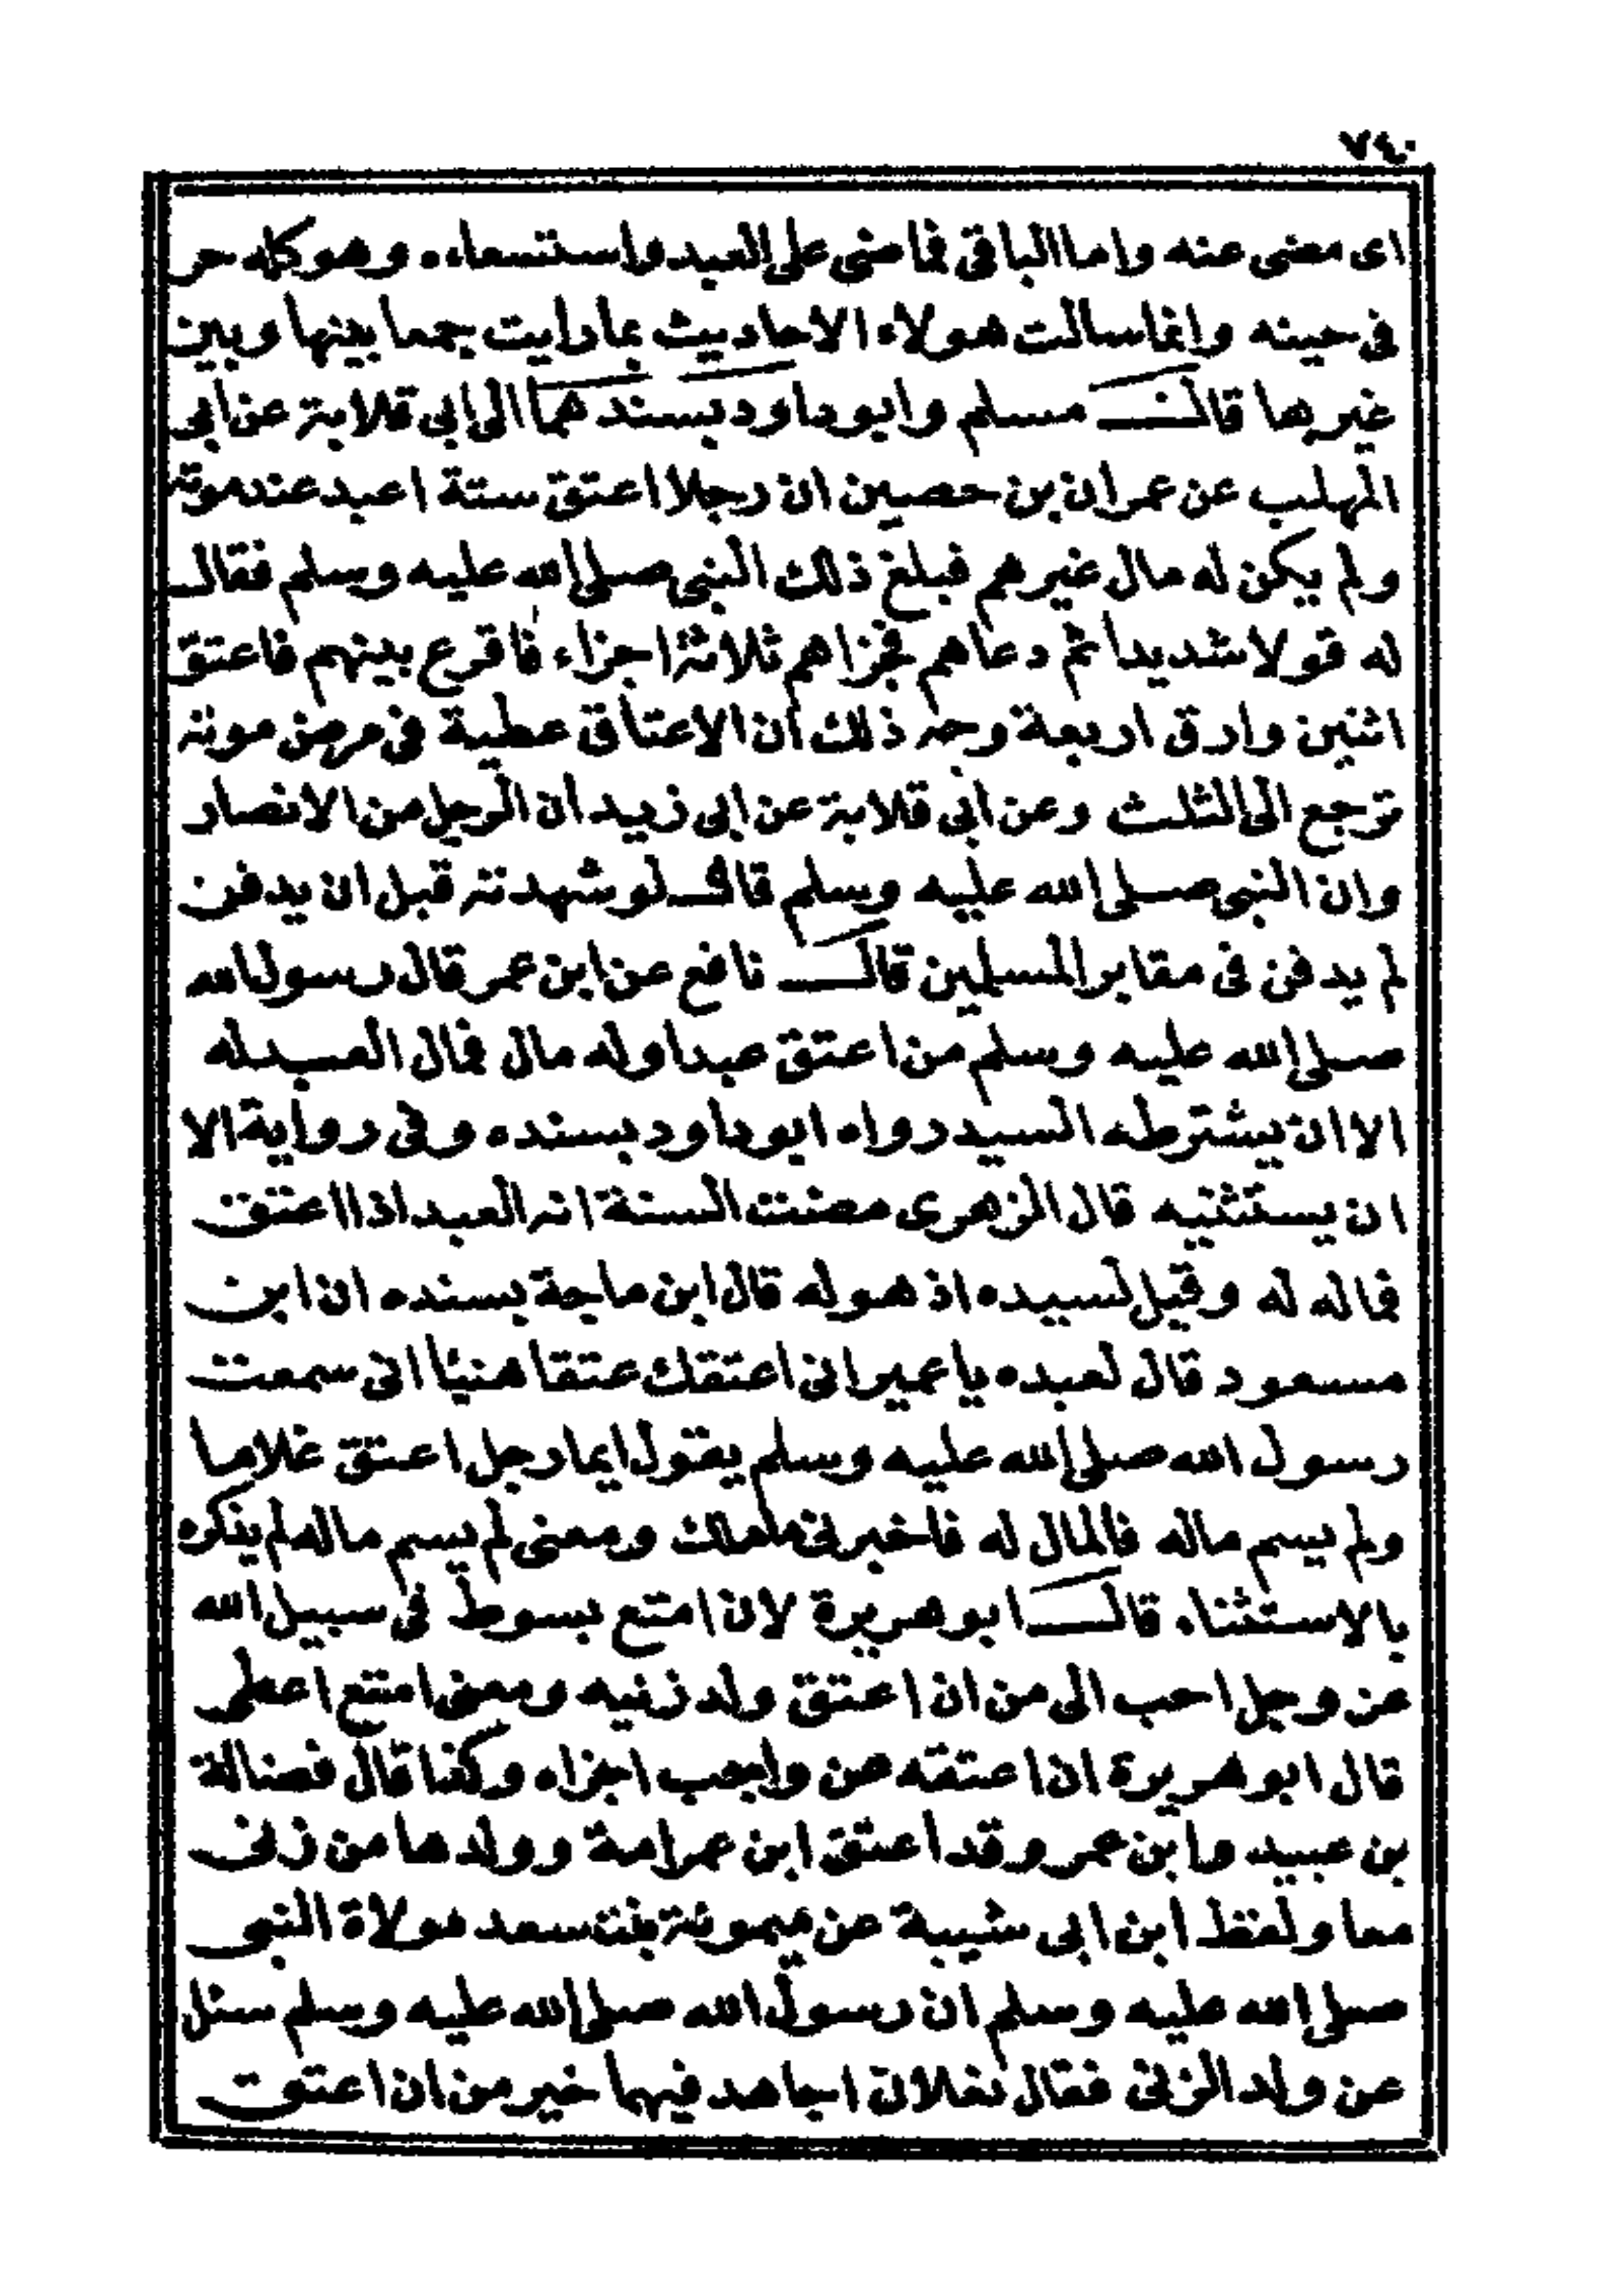 ٧٤٠
اى معنى عنه واما الباقى فماضى على العبد واستسعاءه وهو كله حر
فى حينه وانما سالت هولاء الاحاديث بمارايت جمعا بينها وبين
غيرها قالــ مسلم وابوداود بسندهما الى ابى قلابة عن ابى
المهلب عن عمران بن حصين ان رجلا اعتق ستة اعبد عند موته
ولم يكن له مال غيرهم فبلغ ذلك النبى صلى الله عليه وسلم فقال
له قولا شديدا ثم دعاهم فجزاهم ثلاثة اجزاء فاقرع بينهم فاعتق
اثنين وارق اربعة وجه ذلك ان الاعتاق عطية فى مرض موته
ترجع الى الثلث وعن ابى قلابة عن ابى زيد ان الرجل من الانصار
وان النبى صلى الله عليه وسلم قالــ لو شهدته قبل ان يدفن
لم يدفن فى مقابر المسلمين قالــ نافع عن ابن عمر قال رسول الله
صلى الله عليه وسلم من اعتق عبدا وله مال فمال العبد له
الا ان يشترطه السيد رواه ابوداود بسنده وفى رواية الا
ان يستثنيه قال الزهرى مضت السنة انه العبد اذا اعتق
فماله له وقيل لسيده اذ هو له قال ابن ماجة بسنده ان ابن
مسعود قال لعبده يا عمير انى اعتقك عتقا هنيئا انى سمعت
رسول الله صلى الله عليه وسلم يقول ايما رجل اعتق غلاما
ولم يسم ماله فالمال له فاخبرنى ما مالك ومعنى لم يسم ماله لم ينكره
بالاستثناء قالــ ابو هريرة لان امتع بسوط فى سبيل الله
عز وجل احب الى من ان اعتق ولد زنيه ومعنى امتع اعطى
قال ابو هريرة ان اعتقه عن واجب اجزاه وكذا قال فضالة
بن عبيد وابن عمر وقد اعتق ابن عمر امة وولدها من زنى
معا ولفظ ابن ابى شيبة عن ميمونة بنت سعد مولاة النبى
صلى الله عليه وسلم ان رسول الله صلى الله عليه وسلم سئل
عن ولد الزنى فقال نعلان اجاهد فيهما خير من ان اعتق